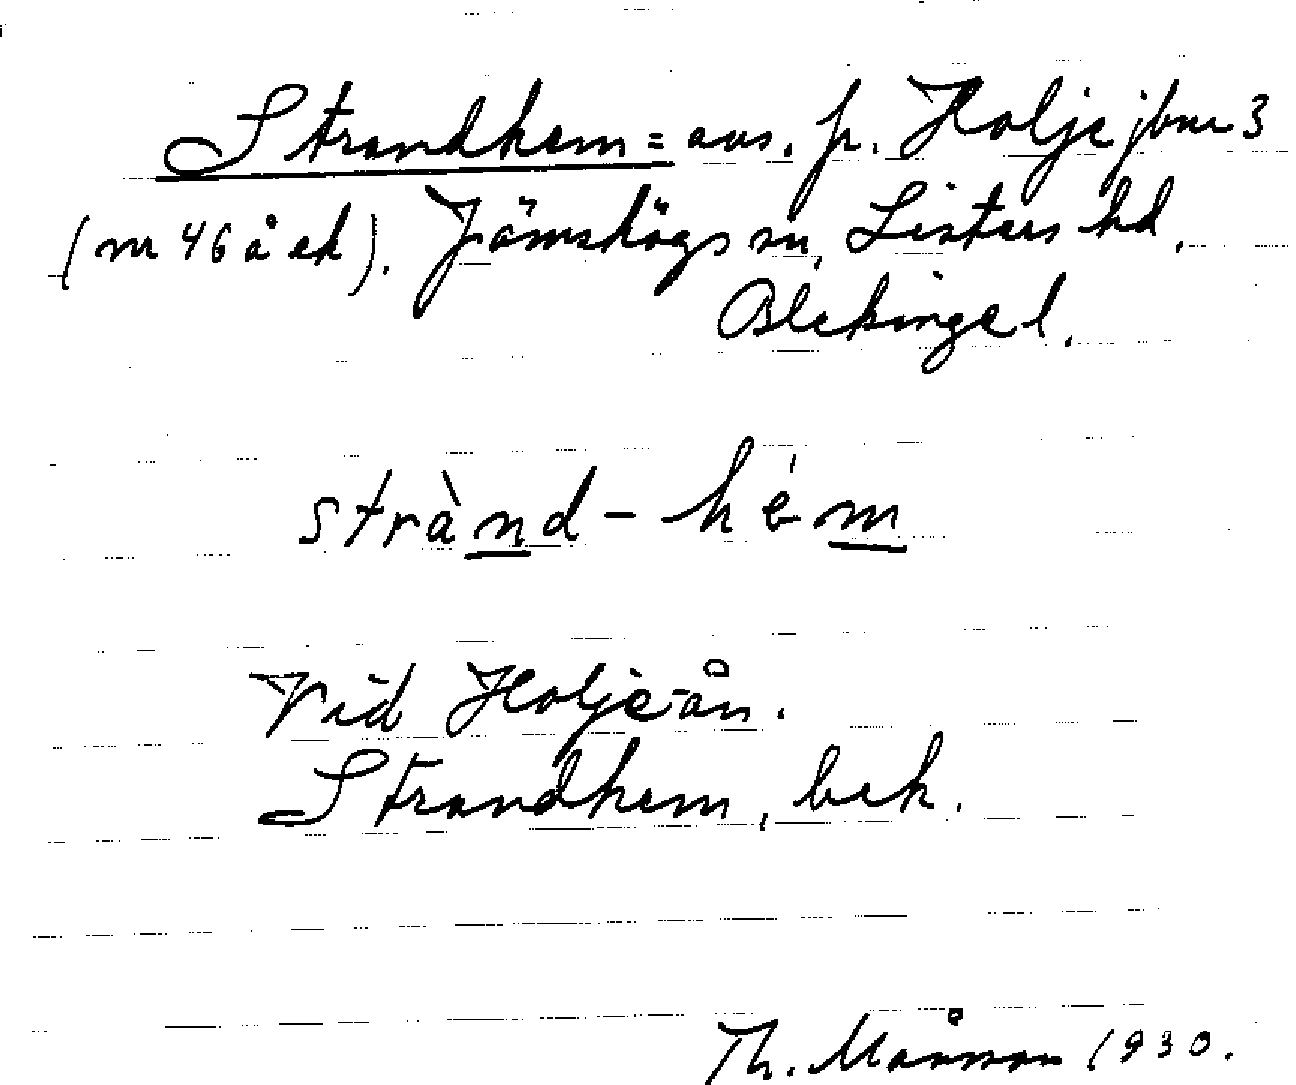 Strandhem = avs. fr. Holje jbnr 3
(nr 46 å ek). Jämshögs sn, Listers hd,
Blekinge l.
strànd-hém
Vid Holje-ån.
Strandhem, bek.
Th. Månsson 1930.